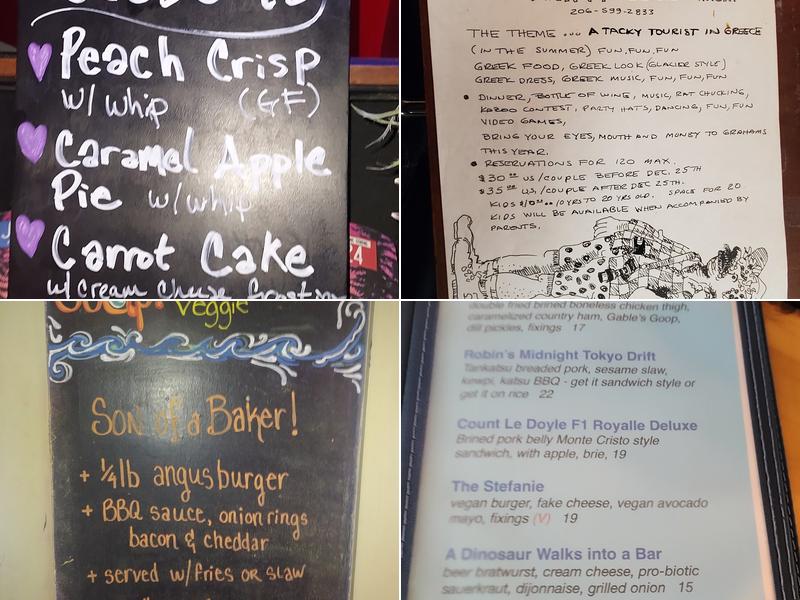 Peach Crisp
w/ whip (GF)
Caramel Apple
Pie w/ whip
Carrot Cake
w/ Cream Cheese frosting
206-599-2833
THE THEME ... A TACKY TOURIST IN GREECE
(IN THE SUMMER) FUN, FUN, FUN
GREEK FOOD, GREEK LOOK (GLACIER STYLE)
GREEK DRESS, GREEK MUSIC, FUN, FUN, FUN
• DINNER, BOTTLE OF WINE, MUSIC, RAT CHUCKING,
KAZOO CONTEST, PARTY HATS, DANCING, FUN, FUN
VIDEO GAMES,
BRING YOUR EYES, MOUTH AND MONEY TO GRAHAMS
THIS YEAR.
• RESERVATIONS FOR 120 MAX.
$30.00 US/COUPLE BEFORE DEC. 25TH
$35.00 US/COUPLE AFTER DEC 25TH.
KIDS $10.00 10 YRS TO 20 YRS OLD. SPACE FOR 20
KIDS WILL BE AVAILABLE WHEN ACCOMPANIED BY
PARENTS.
Veggie
Son of a Baker!
+ 1/4 lb angus burger
+ BBQ sauce, onion rings
bacon & cheddar
+ served w/ fries or slaw
double fried brined boneless chicken thigh,
caramelized country ham, Gable's Goop,
dill pickles, fixings 17
Robin's Midnight Tokyo Drift
Tankatsu breaded pork, sesame slaw,
kewpi, katsu BBQ - get it sandwich style or
get it on rice 22
Count Le Doyle F1 Royalle Deluxe
Brined pork belly Monte Cristo style
sandwich, with apple, brie, 19
The Stefanie
vegan burger, fake cheese, vegan avocado
mayo, fixings (V) 19
A Dinosaur Walks into a Bar
beer bratwurst, cream cheese, pro-biotic
sauerkraut, dijonnaise, grilled onion 15